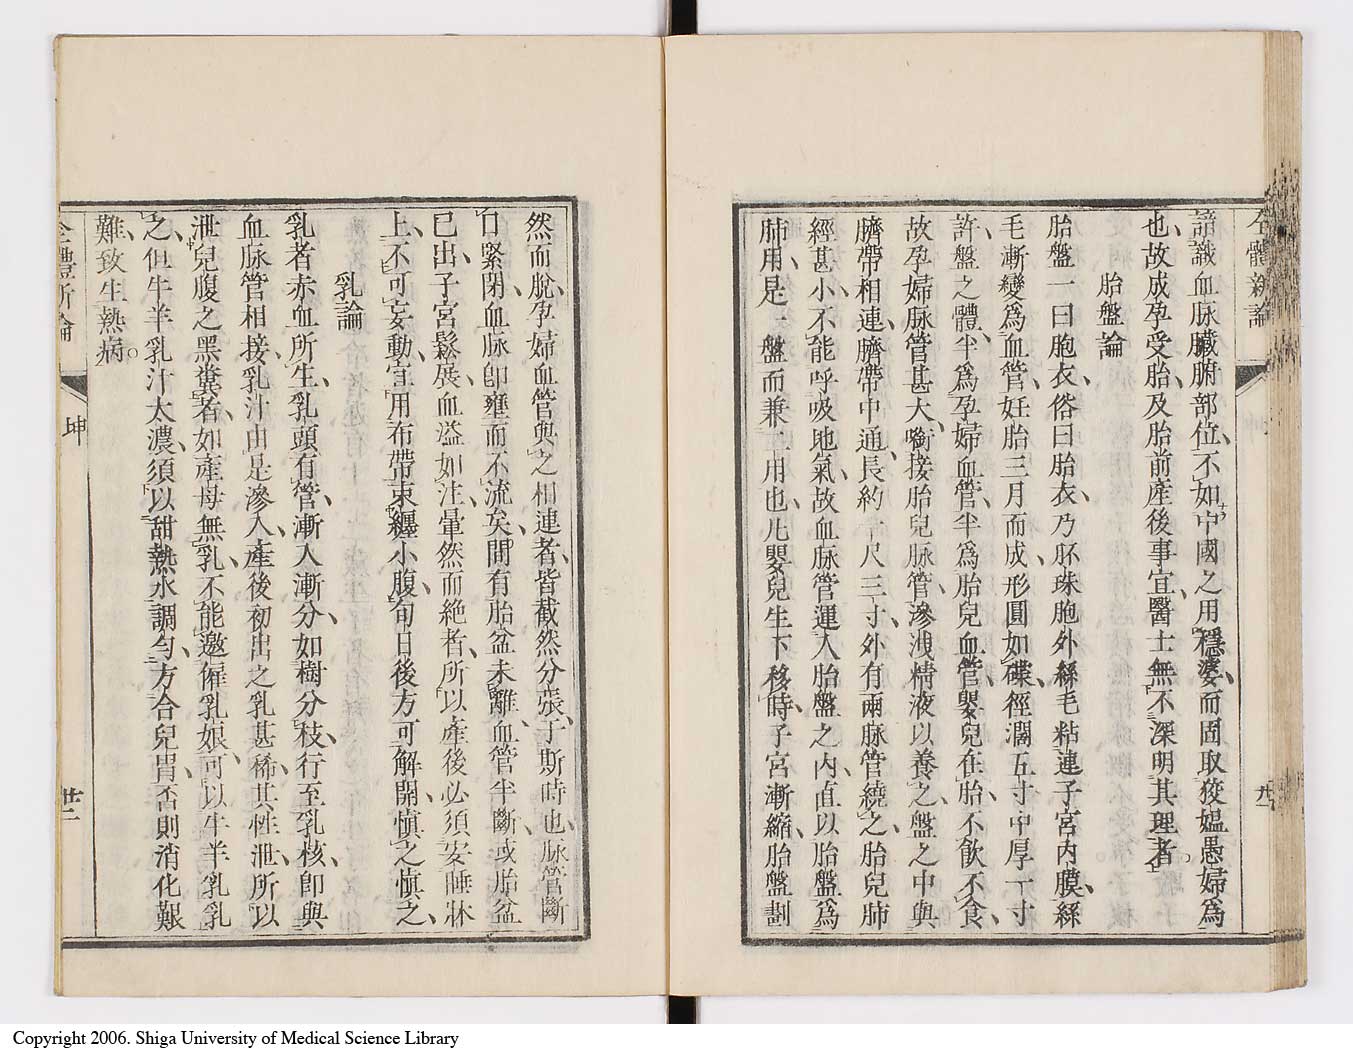 全體新論
諳識血脉臟腑部位不如中國之用穩婆而固取狡媼愚婦爲
也故成孕受胎及胎前產後事宜醫士無不深明其理者
胎盤論
胎盤一曰胞衣俗曰胎衣乃胚珠胞外絲毛粘連子宮內膜絲
毛漸變爲血管妊胎三月而成形圓如碟徑濶五寸中厚一寸
許盤之體半爲孕婦血管半爲胎兒血管嬰兒在胎不飲不食
故孕婦脉管甚大啣接胎兒脉管滲洩精液以養之盤之中與
臍帶相連臍帶中通長約一尺三寸外有兩脉管繞之胎兒肺
經甚小不能呼吸地氣故血脉管運入胎盤之內直以胎盤爲
肺用是一盤而兼二用也凡嬰兒生下移時子宮漸縮胎盤劃
然而脫孕婦血管與之相連者皆截然分張于斯時也脉管斷
口緊閉血脉卽壅而不流矣間有胎盆未離血管半斷或胎盆
已出子宮鬆展血溢如注暈然而絶者所以產後必須安睡牀
上不可妄動宜用布帶束纏小腹旬日後方可解開愼之愼之
乳論
乳者赤血所生乳頭有管漸入漸分如樹分枝行至乳核卽與
血脉管相接乳汁由是滲入產後初出之乳甚稀其性泄所以
泄兒腹之黑糞者如產母無乳不能邀僱乳娘可以牛羊乳乳
之但牛羊乳汁太濃須以甜熱水調勻方合兒胃否則消化艱
難致生熱病
全體新論
坤
廿二
Copyright 2006. Shiga University of Medical Science Library